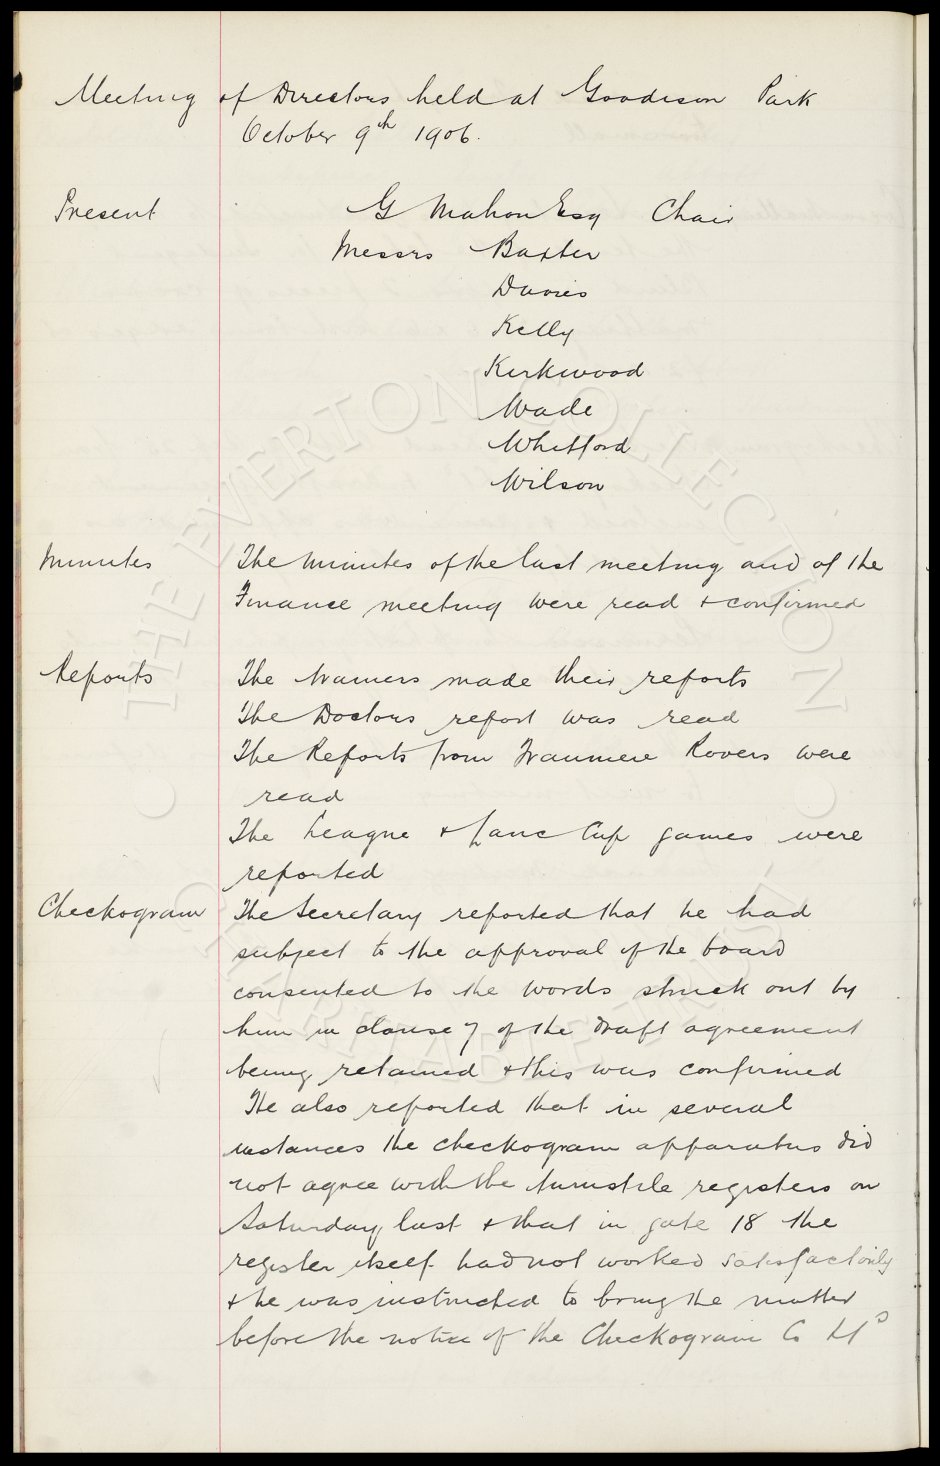 Meeting of Directors held at Goodison Park
October 9th 1906.
Present G Mahon Esq Chair
Messrs Baxter
Davies
Kelly
Kirkwood
Wade
Whitford
Wilson
Minutes The minutes of the last meeting and of the
Finance meeting were read & confirmed
Reports The trainers made their reports
The Doctors report was read
The Reports from Tranmere Rovers were
read
The League & Lanc Cup games were
reported
Checkogram The Secretary reported that he had
subject to the approval of the board
consented to the words struck out by
him in clause 7 of the draft agreement
being retained & this was confirmed
He also reported that in several
instances the checkogram apparatus did
not agree with the turnstile registers on
Saturday last & that in gate 18 the
register itself had not worked satisfactorily
& he was instructed to bring the matter
before the notice of the Checkogram Co Ltd
THE EVERTON COLLECTION
CHARITABLE TRUST